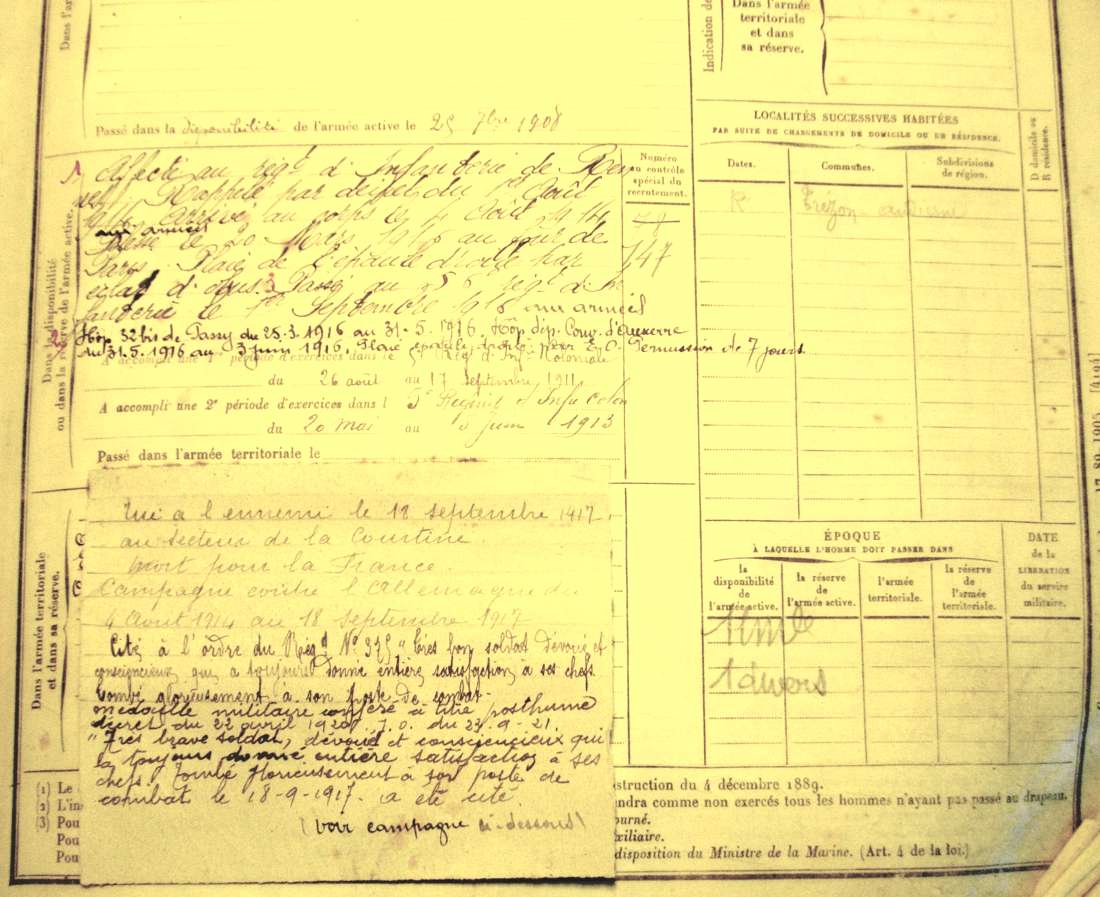 Dans l'arm
Passé dans la disponibilité de l'armée active le 25 7bre 1908
Dans la disponibilité
ou dans la réserve de l'armée active.
1.
Affecté au régt d'Infanterie de
Rappelé par décret du 1er Août
1914 Arrivé au corps le 4 Août 1914
aux armées
Blessé le 20 Mars 1916 au four de
Paris. Plaie de l'épaule droite par
éclat d'obus. 3 Passé au 56 régt d'In
fanterie le 1er Septembre 1916 aux armées
2.
Hôp 32 bis de Passy du 25.3.1916 au 31.5.1916. Hôp. dép. Conv. d'Auxerre
du 31.5.1916 au 3 juin 1916. Plaie épaule droite par E.O. Permission de 7 jours
A accompli une 1e période d'exercices dans le 5e Régt d'Infie Coloniale
du 26 août au 17 septembre 1911
A accompli une 2e période d'exercices dans l 5e Régiment d'Infie Colon
du 20 mai au juin 1913
Passé dans l'armée territoriale le
Numéro
au contrôle
spécial du
recrutement.
79
747
Dans l'armée territoriale
et dans sa réserve.
Tué à l'ennemi le 18 septembre 1917
au secteur de la Courtine.
Mort pour la France.
Campagne contre l'Allemagne du
4 Août 1914 au 18 septembre 1917
Cité à l'ordre du Régt No 375 "Très bon soldat dévoué et
consciencieux qui a toujours donné entière satisfaction à ses chefs.
Tombé glorieusement à son poste de combat.
médaille militaire conféré à titre posthume
décret du 22 avril 1920. J.O. du 23-9-21.
"Très brave soldat, dévoué et consciencieux qui
a toujours donné entière satisfaction à ses
chefs. Tombé glorieusement à son poste de
combat le 18-9-1917. a été cité.
(voir campagne ci-dessous)
(1) Le
(2) L'in
(3) Pou
Pou
Pou
Indication de
Dans l'armée
territoriale
et dans
sa réserve.
LOCALITÉS SUCCESSIVES HABITÉES
PAR SUITE DE CHANGEMENTS DE DOMICILE OU DE RÉSIDENCE.
Dates.
Communes.
Subdivisions
de région.
D domicile ou
R résidence.
R
ÉPOQUE
À LAQUELLE L'HOMME DOIT PASSER DANS
la
disponibilité
de
l'armée active.
la réserve
de
l'armée active.
l'armée
territoriale.
la réserve
de
l'armée
territoriale.
DATE
de la
LIBÉRATION
du service
militaire.
struction du 4 décembre 1889.
endra comme non exercés tous les hommes n'ayant pas passé au drapeau.
ourné.
xiliaire.
disposition du Ministre de la Marine. (Art. 4 de la loi.)